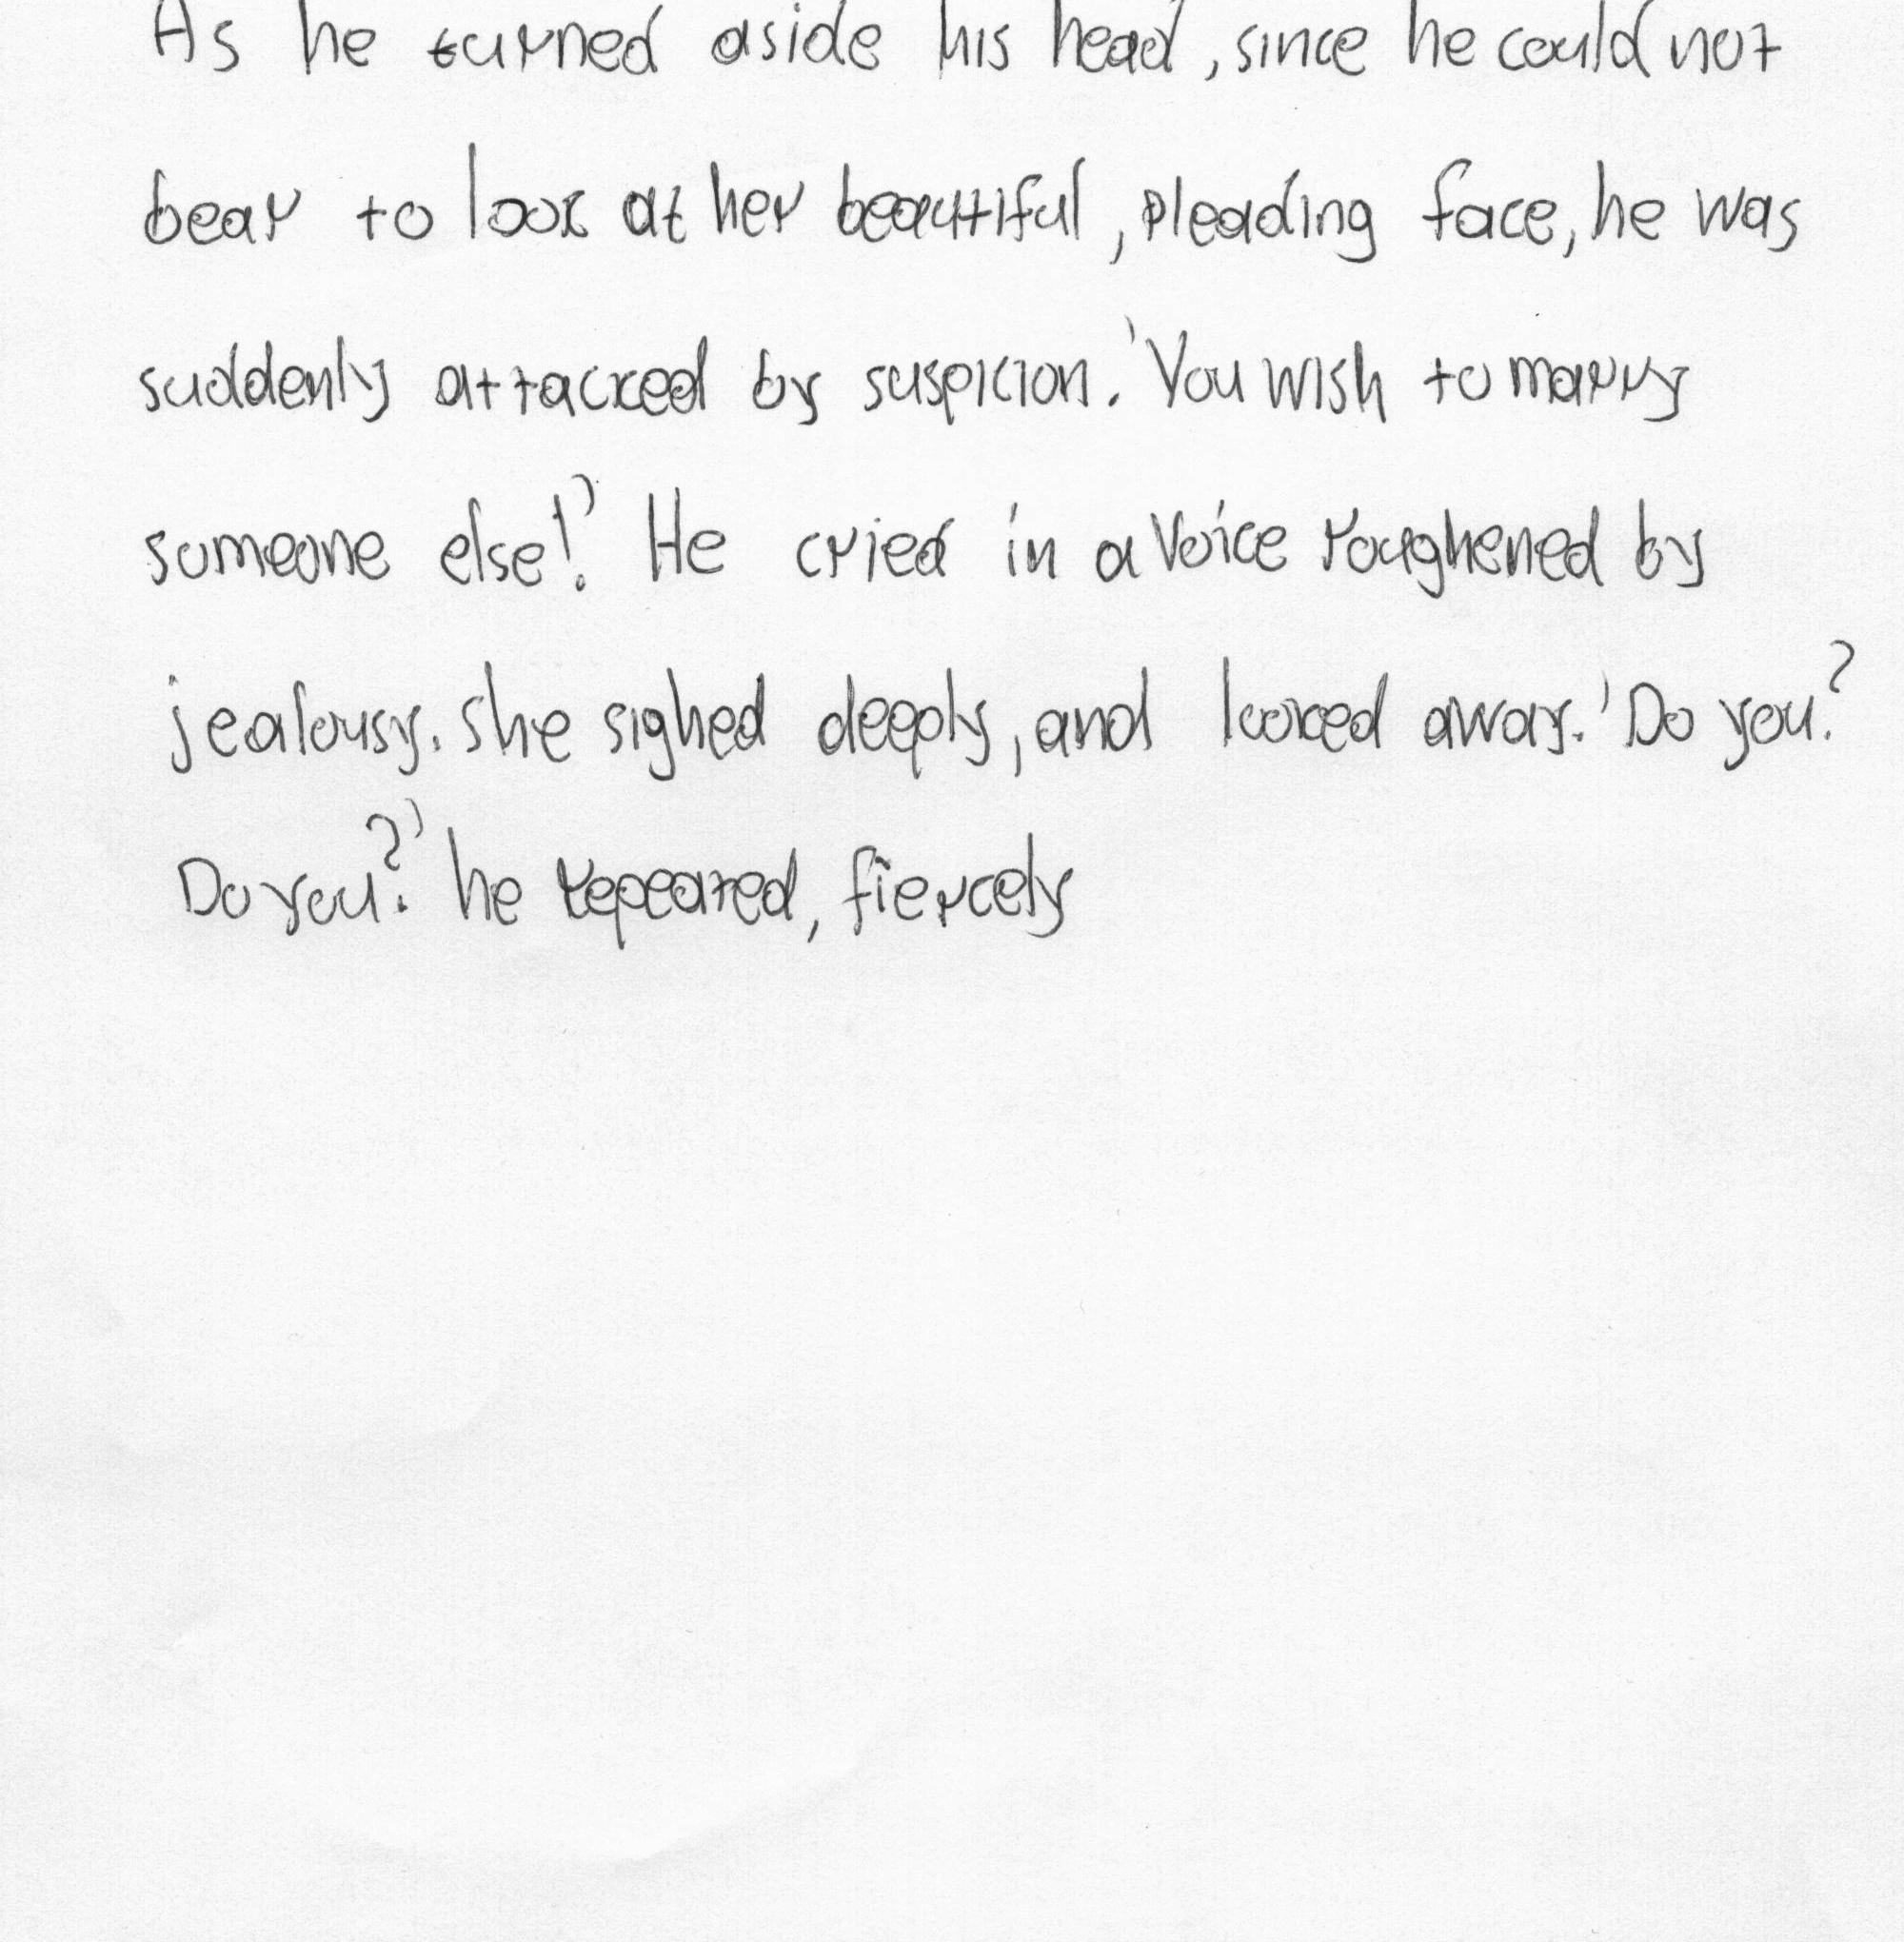 As he turned aside his head, since he could not
bear to look at her beautiful, pleading face, he was
suddenly attacked by suspicion. 'You wish to marry
someone else!' He cried in a voice roughened by
jealousy. she sighed deeply, and looked away. 'Do you?
Do you?' he repeated, fiercely